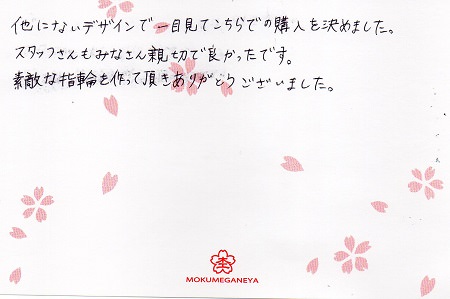 他にないデザインで一目見てこちらでの購入を決めました。
スタッフさんもみなさん親切で良かったです。
素敵な指輪を作って頂きありがとうございました。
MOKUMEGANEYA